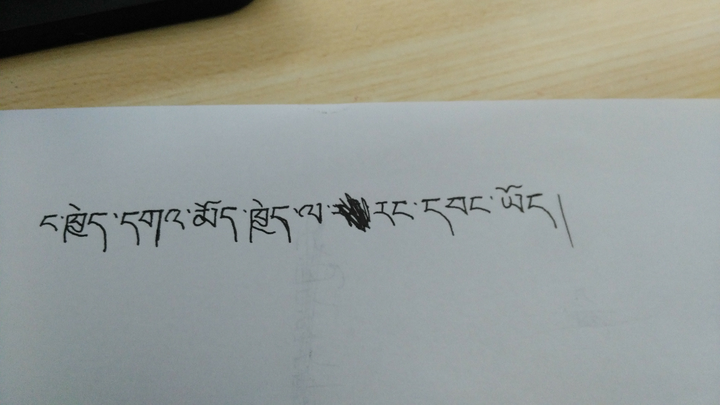 ང་ཁྱེད་དགའ་མོད་ཁྱེད་ལ་རང་དབང་ཡོད།